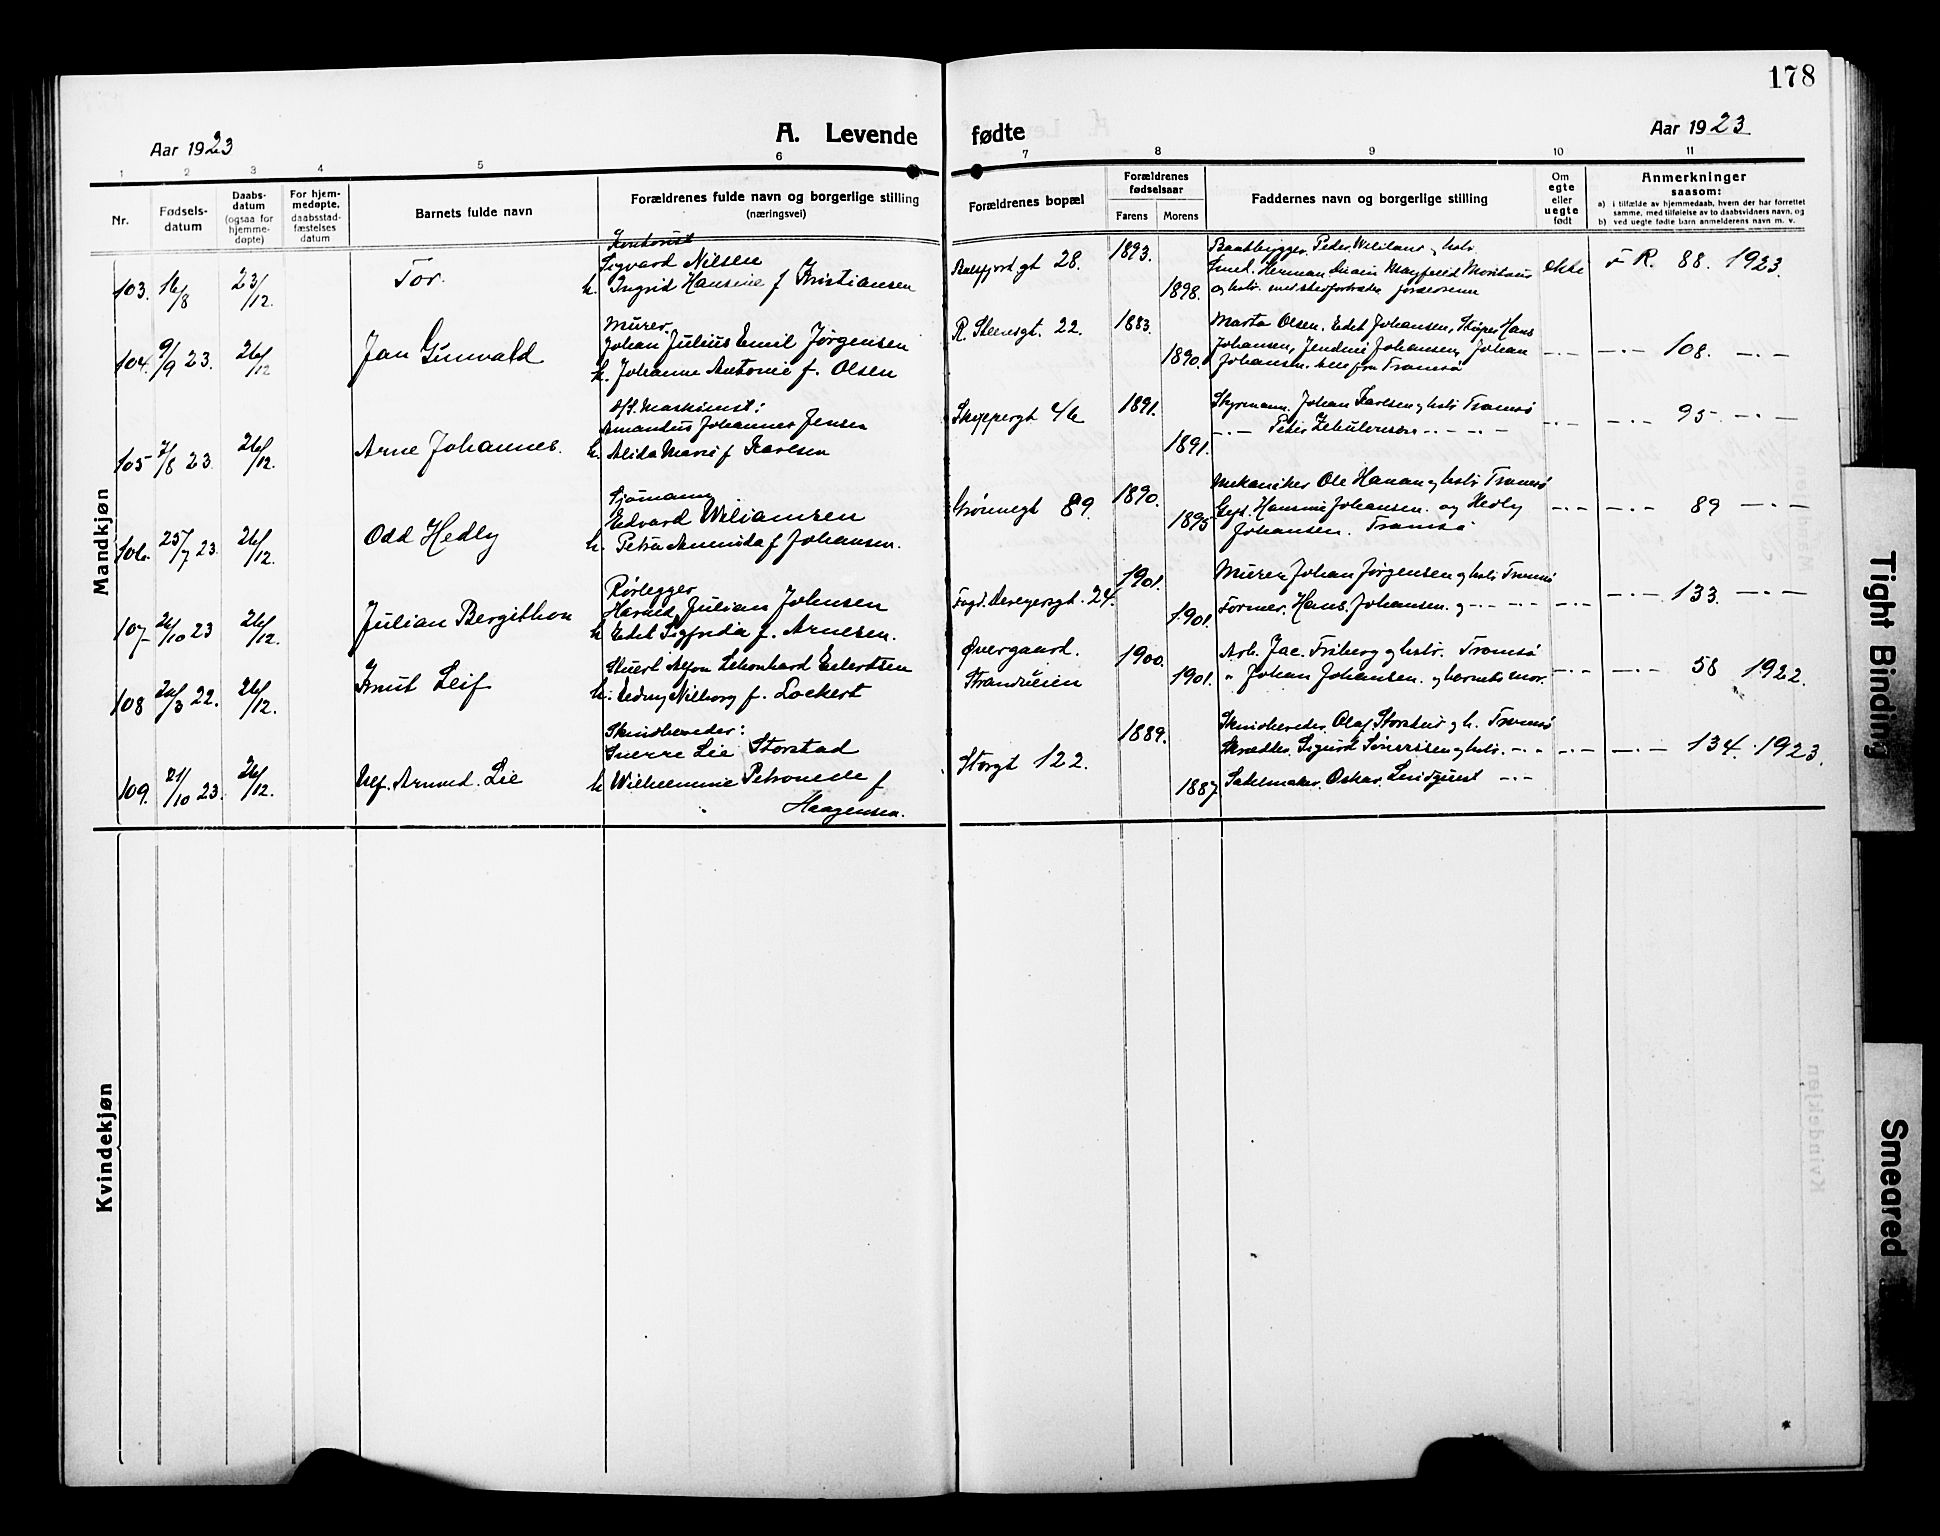 178
Aar 1923
A. Levende fødte
Aar 1923
1 2 3 4 5 6 7 8 9 10 11
Nr.
Fødsels-
datum
Daabs-
datum
(ogsaa for
hjemme-
døpte)
For hjem-
medøpte,
daabsstad-
fæstelses
datum
Barnets fulde navn
Forældrenes fulde navn og borgerlige stilling
(næringsvei)
Forældrenes bopæl
Forældrenes
fødselsaar
Farens Morens
Faddernes navn og borgerlige stilling
Om
egte
eller
uegte
født
Anmerkninger
saasom:
a) i tilfælde av hjemmedaab, hvem der har forrettet
samme, med tilføielse av to daabsvidners navn, og
b) ved uegte fødte barn anmelderens navn m. v.
Mandkjøn
103. 16/8 23/12. Tor.
Kontorist
Sigvard Nilsen
h. Ingrid Hansine f Kristiansen
Balsfjord.gt 28. 1893. 1898.
Baatbygger Peder og hstr
Herman
og hstr. med stedfortræder forældrene
ekte F R. 88. 1923.
104. 9/9 23. 26/12 Jan Gunvald
Murer.
Johan Julius Emil Jørgensen
h. Johanne Antonie f. Olsen
R. Steensgt. 22. 1883. 1890.
Marta Olsen. Edit Johansen, Hans
Johansen, Johansen, Johan
Johansen. fra Tromsø
-.- -.- 108. -.-
105 2/8 23. 26/12. Arne Johannes.
D/S. Maskinist:
Amandus Johannes Jensen
h. Alida Marie f Karlsen
Skippergt 46 1891. 1891.
Styrmann. Johan Karlsen og hstr Tromsø
-.- Peder -.- -.-
-.- -.- 95 -.-
106. 25/7 23. 26/12. Odd Hedly
Sjømann
Edvard Wiliamsen
h. Petra f Johansen.
Grønnegt 89. 1890. 1895
Mekaniker Ole Hanan og hstr Tromsø
Hansine Johansen. og Hedly
Johansen. Tromsø
-.- -.- 89 -.-
107 26/10 23 26/12. Julian Bergithon
Rørlegger
Harald Julian Johnsen
h Edit Sigfrida f. Arnesen.
Fogd. Dreyersgt. 24. 1901. 1901.
Murer Johan Jørgensen og hstr Tromsø
Former. Hans. Johansen. og -.- -.-
-.- -.- 133. -.-
108 26/3 22. 26/12. Knut Leif
Stuert Alfon Leonhard
h: Nilborg f. Lockert
Øvergaard.
Strandveien 1900. 1901.
Arb. Jac. Friberg og hstr. Tromsø
" Johan Johansen. og barnets mor.
-.- -.- 58 1922.
109. 21/10 23. 26/12. Ulf. Arnold. Lie
Skindbereder:
Sverre Lie Storstad
h Wilhelmine f
Haagensen.
Storgt 122. 1889. 1887
Skindbereder. Olaf Storstad og h. Tromsø
Skrædder. Sigurd og hstr. -.-
Salmaker. Oskar. Lindquist -.-
-.- -.- 134. 1923.
Kvindekjøn
Tight Binding
Smeared